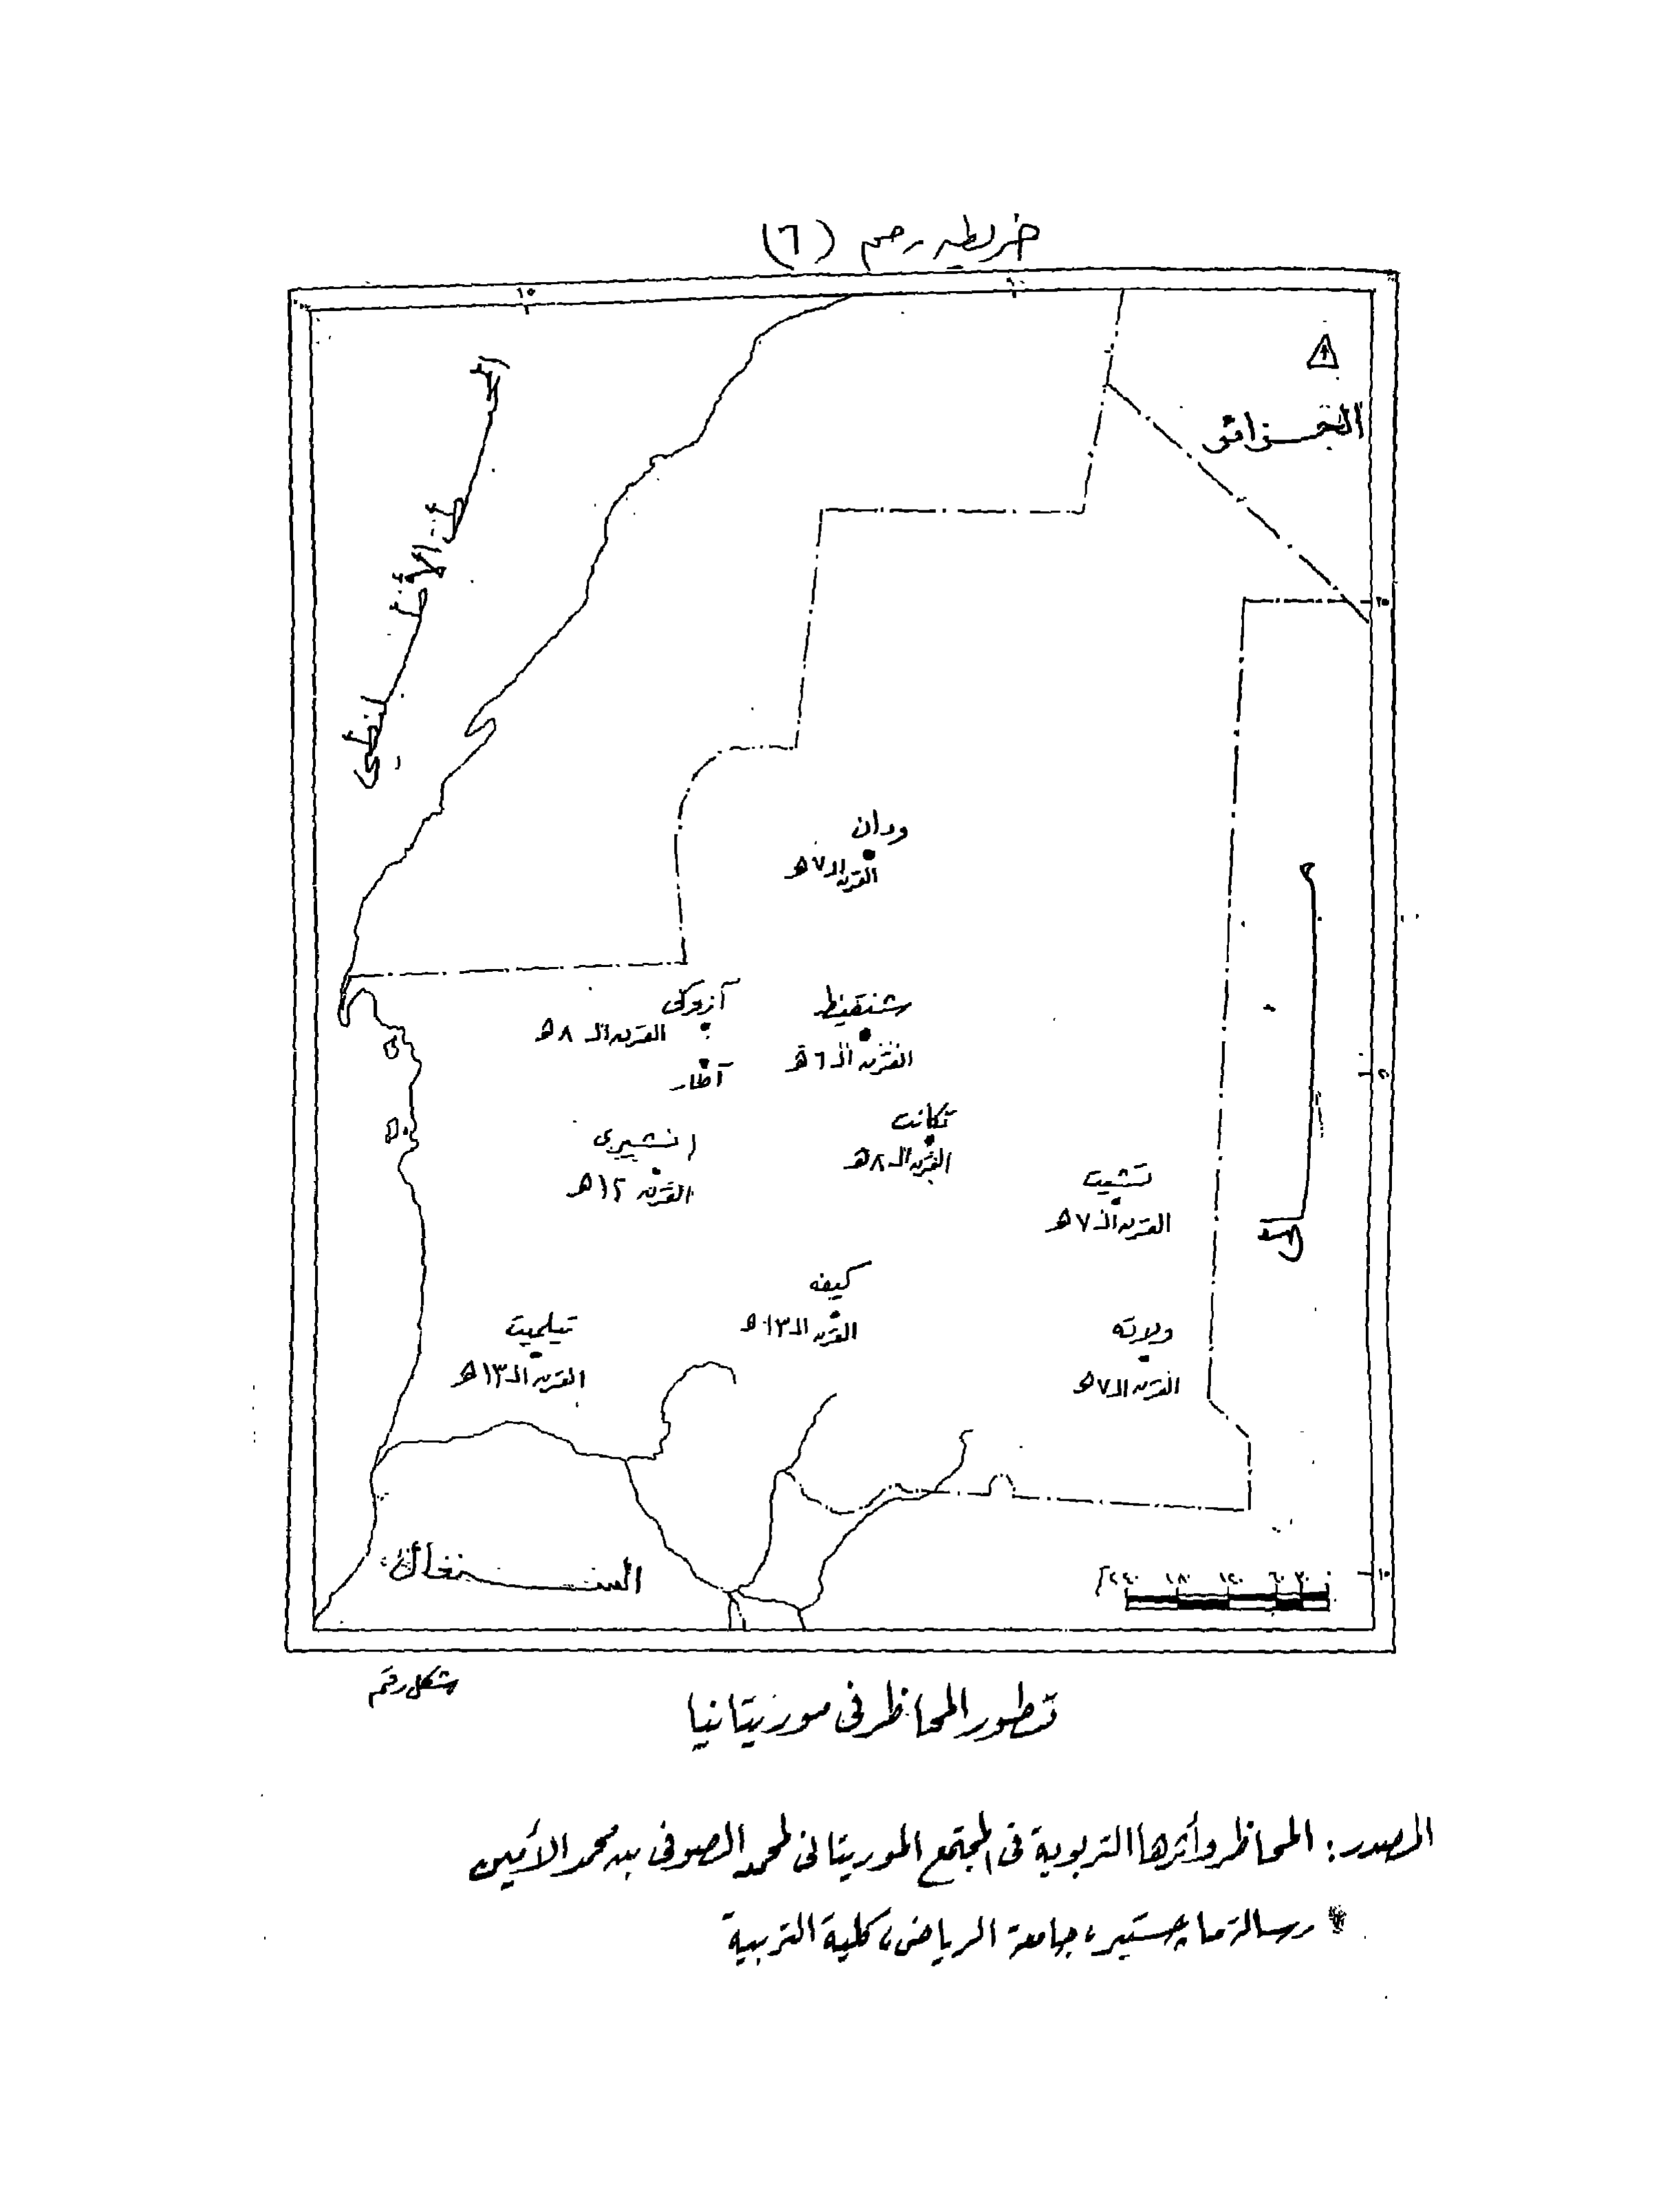 خريطه رقم (٦)
١٥
١٠
الجزائر
المحيط الأطلنطي
٢٥
ودان
القرن الـ ٧ هـ
آزوكى
القرن الـ ٨ هـ
شنقيط
القرن الـ ٦ هـ
آطار
تكانت
القرن الـ ٨ هـ
انشيرى
القرن ١٢ هـ
تشيت
القرن الـ ٧ هـ
مالي
كيفه
القرن الـ ١٣ هـ
تيلميت
القرن الـ ١٣ هـ
ولاته
القرن الـ ٧ هـ
السنغال
٢٤٠ ١٨٠ ١٢٠ ٦٠ ٣٠ ٠
١٥
شكل رقم
تطور المحاظر فى موريتانيا
المصدر: المحاظر وأثرها التربوية فى المجتمع الموريتانى لمحمد الصوفى بن محمد الأمين
* رسالة ماجستير، جامعة الرياض، كلية التربية